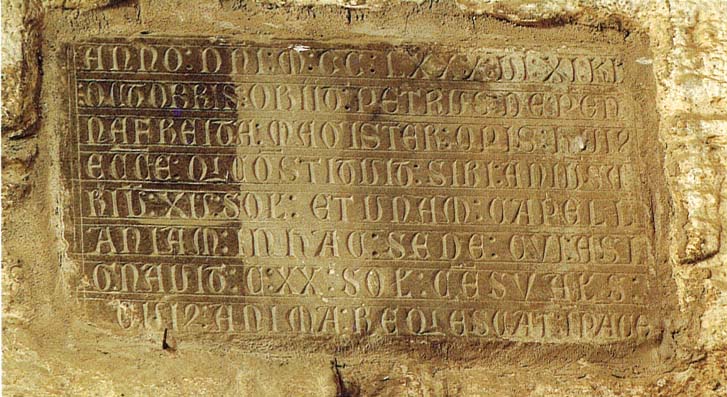 ANNO: DNI: M: CC: LXXXVI: XI: KL
OCTOBRIS: OBIIT: PETRUS: DEPEN
NAFREITA: MAGISTER: OPIS: HUIꝰ
ECCE: QI COSTITUIT: SIBI: ANIVSA
RIU: XV: SOL: ET UNAM: CAPELL
ANIAM: IN HAC: SEDE: CUI: ASI
GNAVIT: C: XX: SOL: CESUALS:
CUIꝰ: ANIMA: REQIESCAT: I PACE